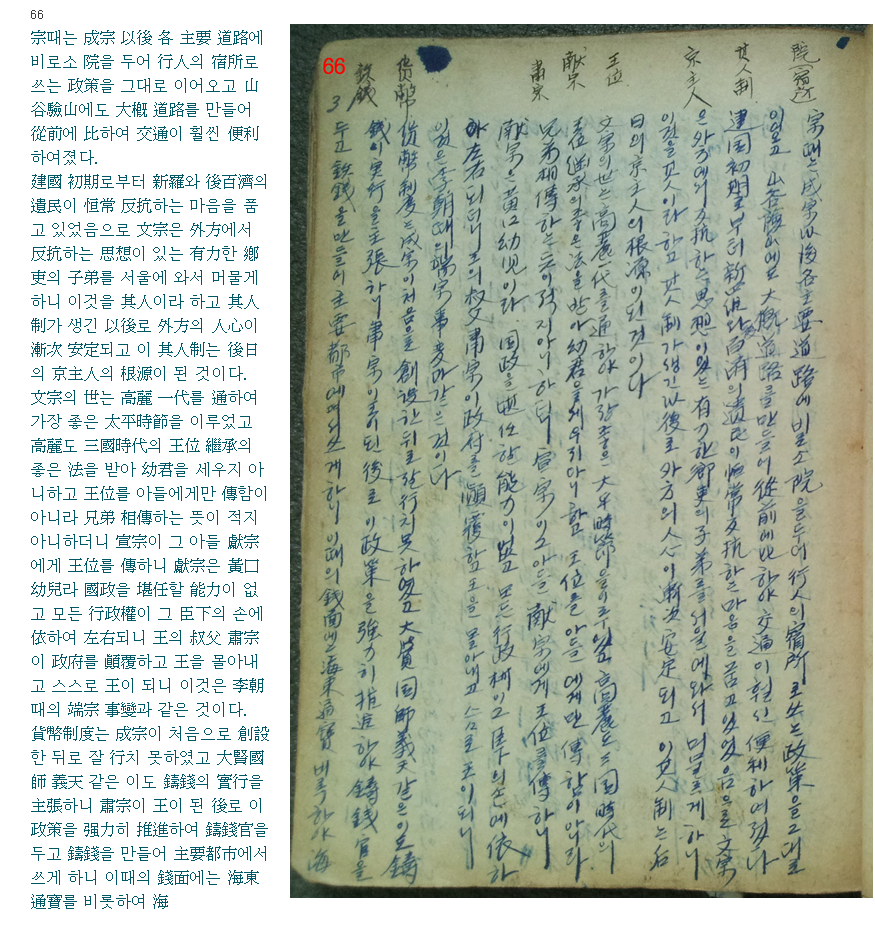 66
宗때는 成宗 以後 各 主要 道路에
비로소 院을 두어 行人의 宿所로
쓰는 政策을 그대로 이어오고 山
谷驗山에도 大槪 道路를 만들어
從前에 比하여 交通이 훨씬 便利
하여졌다.
建國 初期로부터 新羅와 後百濟의
遺民이 恒常 反抗하는 마음을 품
고 있었음으로 文宗은 外方에서
反抗하는 思想이 있는 有力한 鄕
吏의 子弟를 서울에 와서 머물게
하니 이것을 其人이라 하고 其人
制가 생긴 以後로 外方의 人心이
漸次 安定되고 이 其人制는 後日
의 京主人의 根源이 된 것이다.
文宗의 世는 高麗 一代를 通하여
가장 좋은 太平時節을 이루었고
高麗도 三國時代의 王位 繼承의
좋은 法을 받아 幼君을 세우지 아
니하고 王位를 아들에게만 傳함이
아니라 兄弟 相傳하는 뜻이 적지
아니하더니 宣宗이 그 아들 獻宗
에게 王位를 傳하니 獻宗은 黃口
幼兒라 國政을 堪任할 能力이 없
고 모든 行政權이 그 臣下의 손에
依하여 左右되니 王의 叔父 肅宗
이 政府를 顚覆하고 王을 몰아내
고 스스로 王이 되니 이것은 李朝
때의 端宗 事變과 같은 것이다.
貨幣制度는 成宗이 처음으로 創設
한 뒤로 잘 行치 못하였고 大賢國
師 義天 같은 이도 鑄錢의 實行을
主張하니 肅宗이 王이 된 後로 이
政策을 强力히 推進하여 鑄錢官을
두고 鑄錢을 만들어 主要都市에서
쓰게 하니 이때의 錢面에는 海東
通寶를 비롯하여 海
66
院(宿所)
其人制
京主人
王位
献宗
肅宗
貨幣
鉄錢
3
宗때는 成宗以後 各 主要道路에 비로소 院을 두어 行人의 宿所로 쓰는 政策을 그대로
이였고 山谷險山에도 大槪 道路를 만드러 從前에 比하야 交通이 훨신 便利하여젓다
建国初期로부터 新羅와 遺民이 恒常 反抗하는 마음을 품고 있었음으로 文宗
은 外方에서 反抗하는 思想이 있는 有力한 鄕吏의 子弟를 서울에 와서 머물르게 하니
이것을 其人이라 하고 其人制가 생긴 以後로 外方의 人心이 漸次 安定되고 이 其人制는 后
日의 京主人의 根源이 된 것이다
文宗의 世는 高麗一代를 通하야 가장 좋은 太平時節을 이루었고 高麗도 三国時代의
王位 継承의 좋은 法을 받아 幼君을 세우지 아니함 王位를 아들에게만 傳함이 아니라
兄弟相傳하는 뜻이 적지 아니하더니 宣宗이 그 아들 献宗에게 王位를 傳하니
献宗은 黃口幼児라 国政을 堪任할 能力이 없고 모든 行政権이 그 臣下의 손에 依하
야 左右되더니 王의 叔父 肅宗이 政府를 顚覆함 王을 몰아내고 스스로 王이 되니
이것은 李朝때의 端宗事変과 같은 것이다
貨幣制度는 成宗이 처음으로 創設한 뒤로 잘 行치 못하였고 大賢国師 義天 같은 이도 鑄
錢의 実行을 主張하니 肅宗이 王이 된 後로 이 政策을 強力히 推進하야 鑄錢官을
두고 鉄錢을 만들어 主要都市에서 쓰게 하니 이때의 錢面에는 海東通寶 비롯하야 海